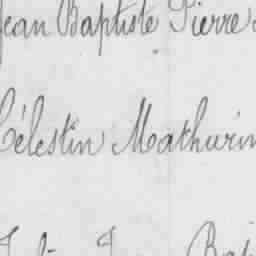 Jean Baptiste Pierre
Célestin Mathurin